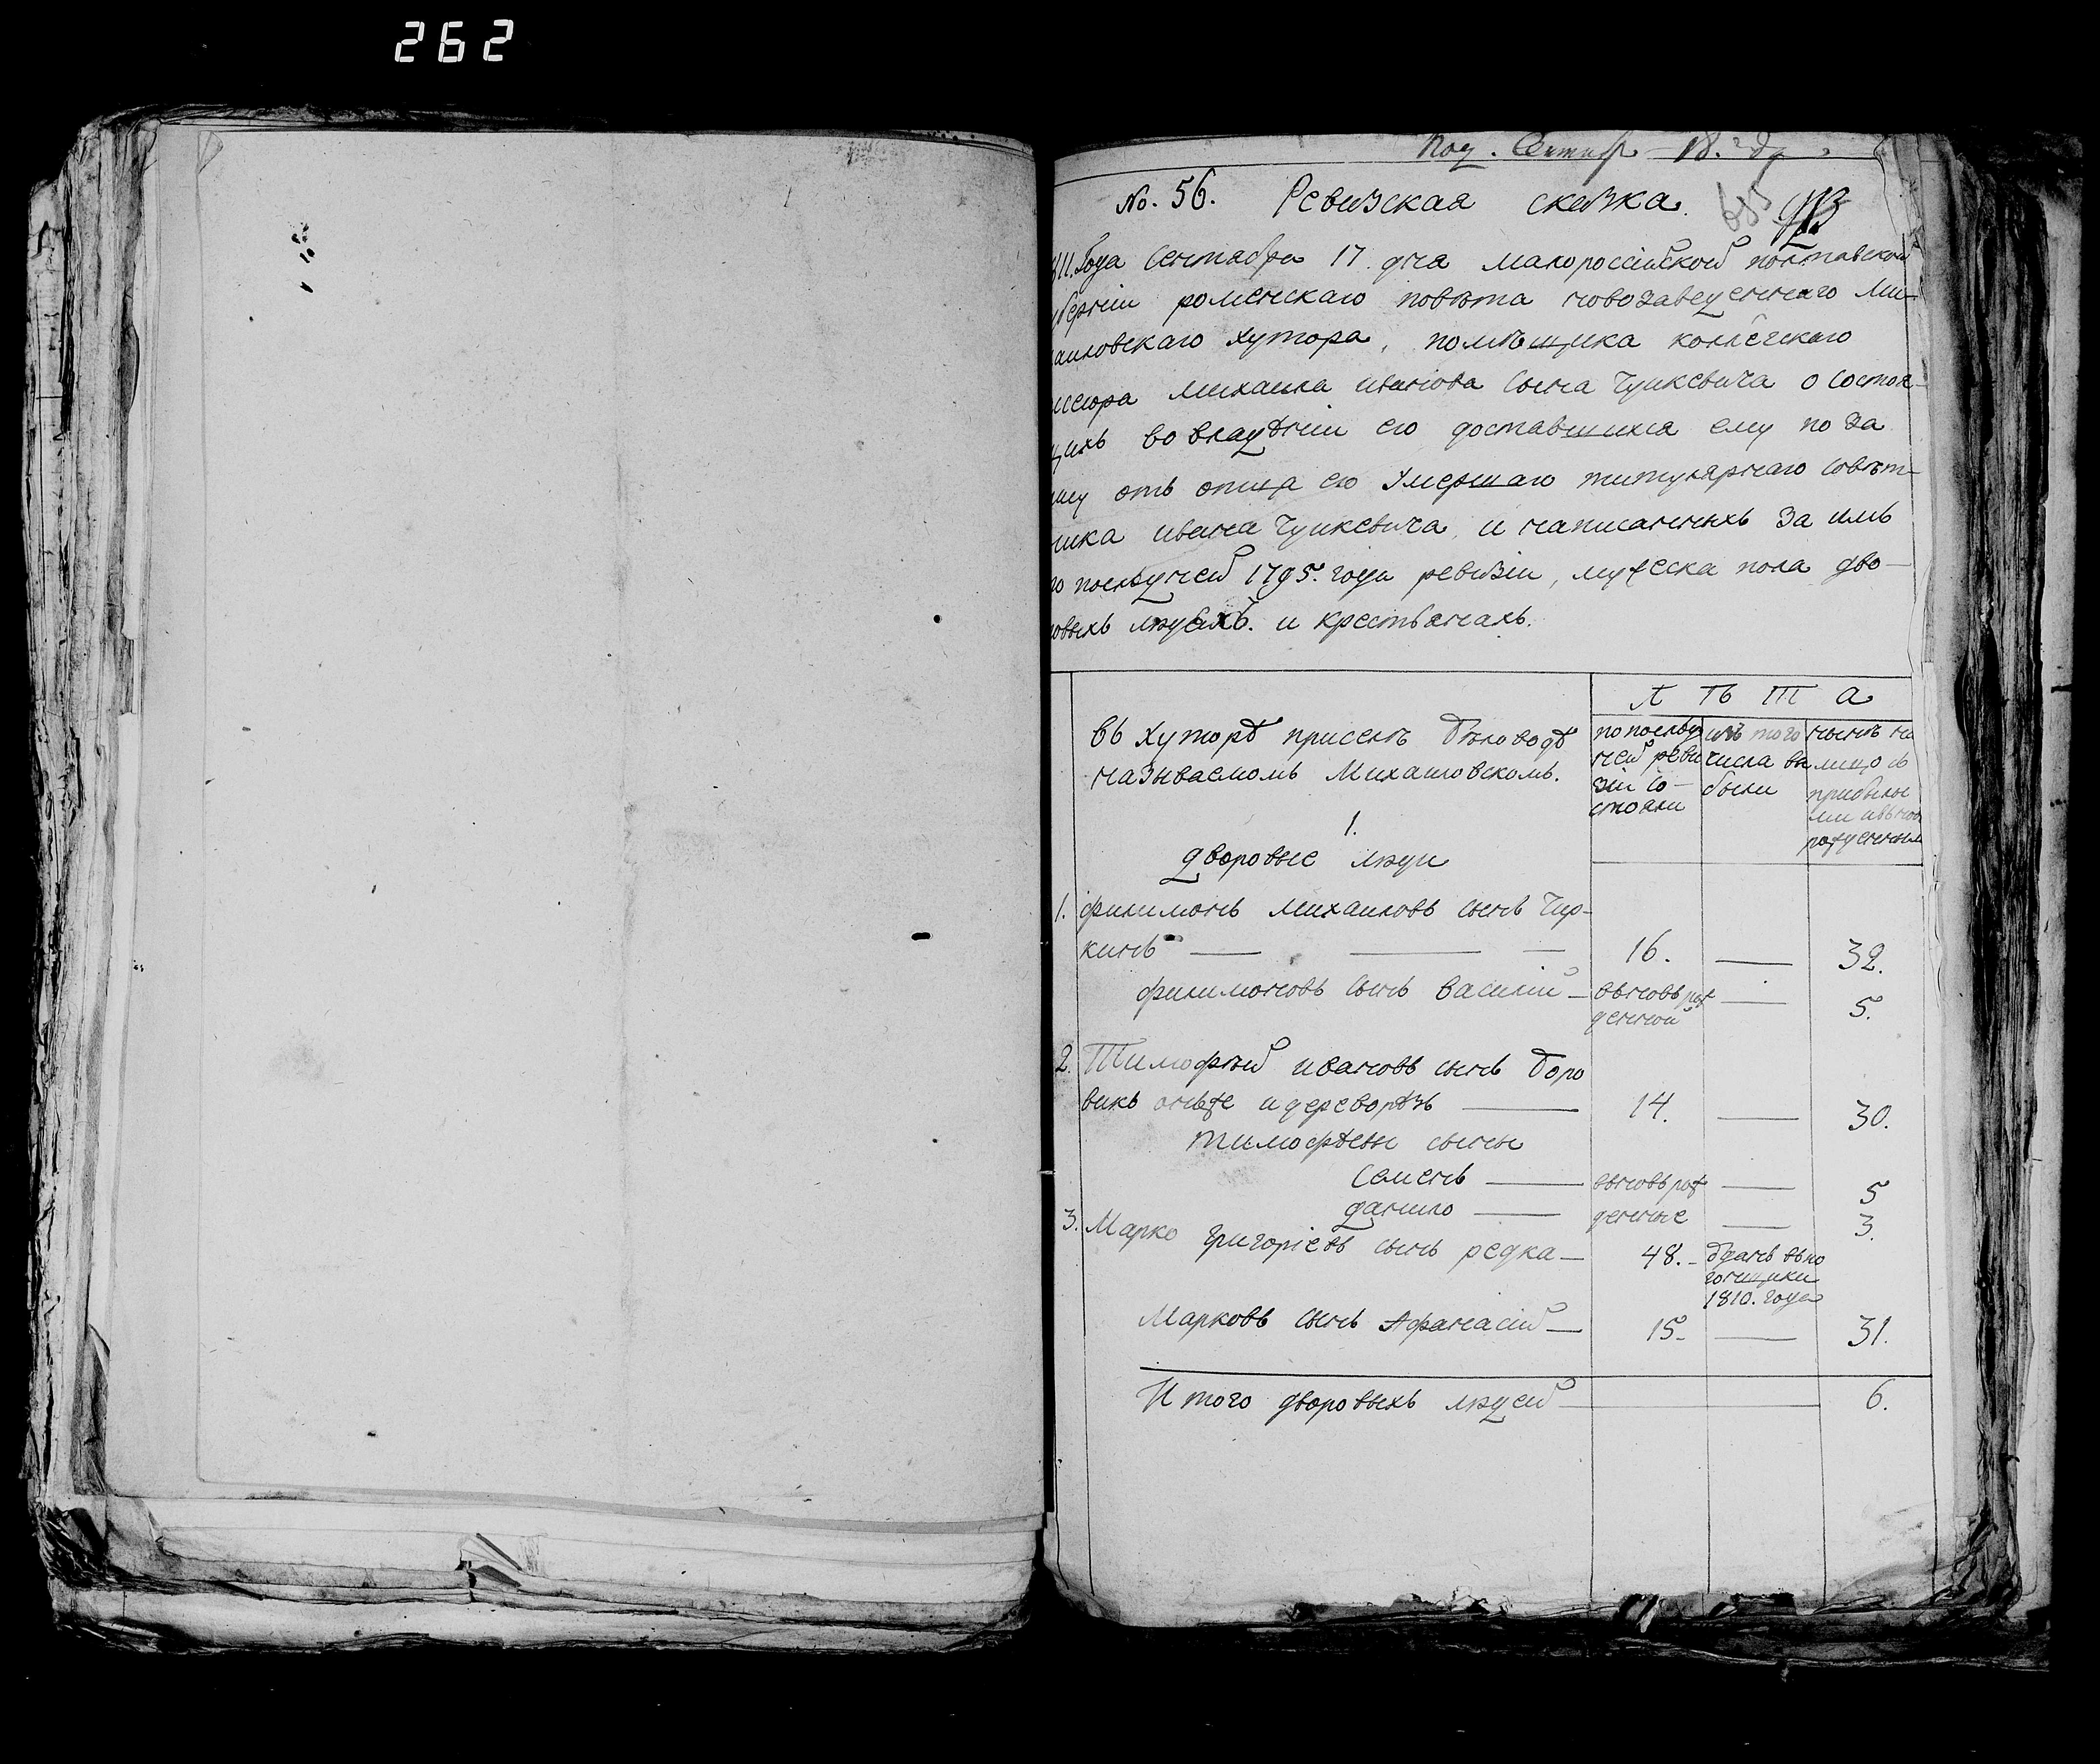 262
Под. Сентяб 18. дд
No. 56. Ревизская скаска. 655
811. Года Сентабра 17. дна малороссійской полтавской
уберніи роменскаго повѣта новозаведеннаго Ми-
аиловскаго хутора, помѣщика коллежскаго
ессора михаила иванова сына Чуйкевича о состоя-
щихъ во владѣніи его доставшихся ему по за
отъ отца его умершаго титулярнаго совѣт-
ника ивана Чуйкевича, и написанныхъ за имъ
по последней 1795. года ревизіи, мужеска пола дво-
ровыхъ людехъ. и крестьянахъ.
Л Ѣ Т А
въ хуторѣ присемъ бѣловодѣ
называемомъ Михаиловскомъ.
по послѣд
ней реви
зіи со-
стояли
изъ того
числа вы
были
нынѣ на
лицо съ
прибылы
ми и вьнов
рожденными
1.
дворовые люди
1. филимонъ михаиловъ сынъ Чир-
кинъ 16. 32.
филимоновъ сынъ василій вьновь рож
денной 5.
2. Тимофѣй ивановъ сынъ боро
викъ онъже и дереворѣзъ 14. 30.
тимофѣевы сыны
Семенъ вьновь рож 5
данило денные 3.
3. Марко григоріевъ сынъ редка 48. зданъ вьпо
гонщики
1810. года
Марковъ сынъ Афанасій 15. 31.
Итого дворовыхъ людей 6.